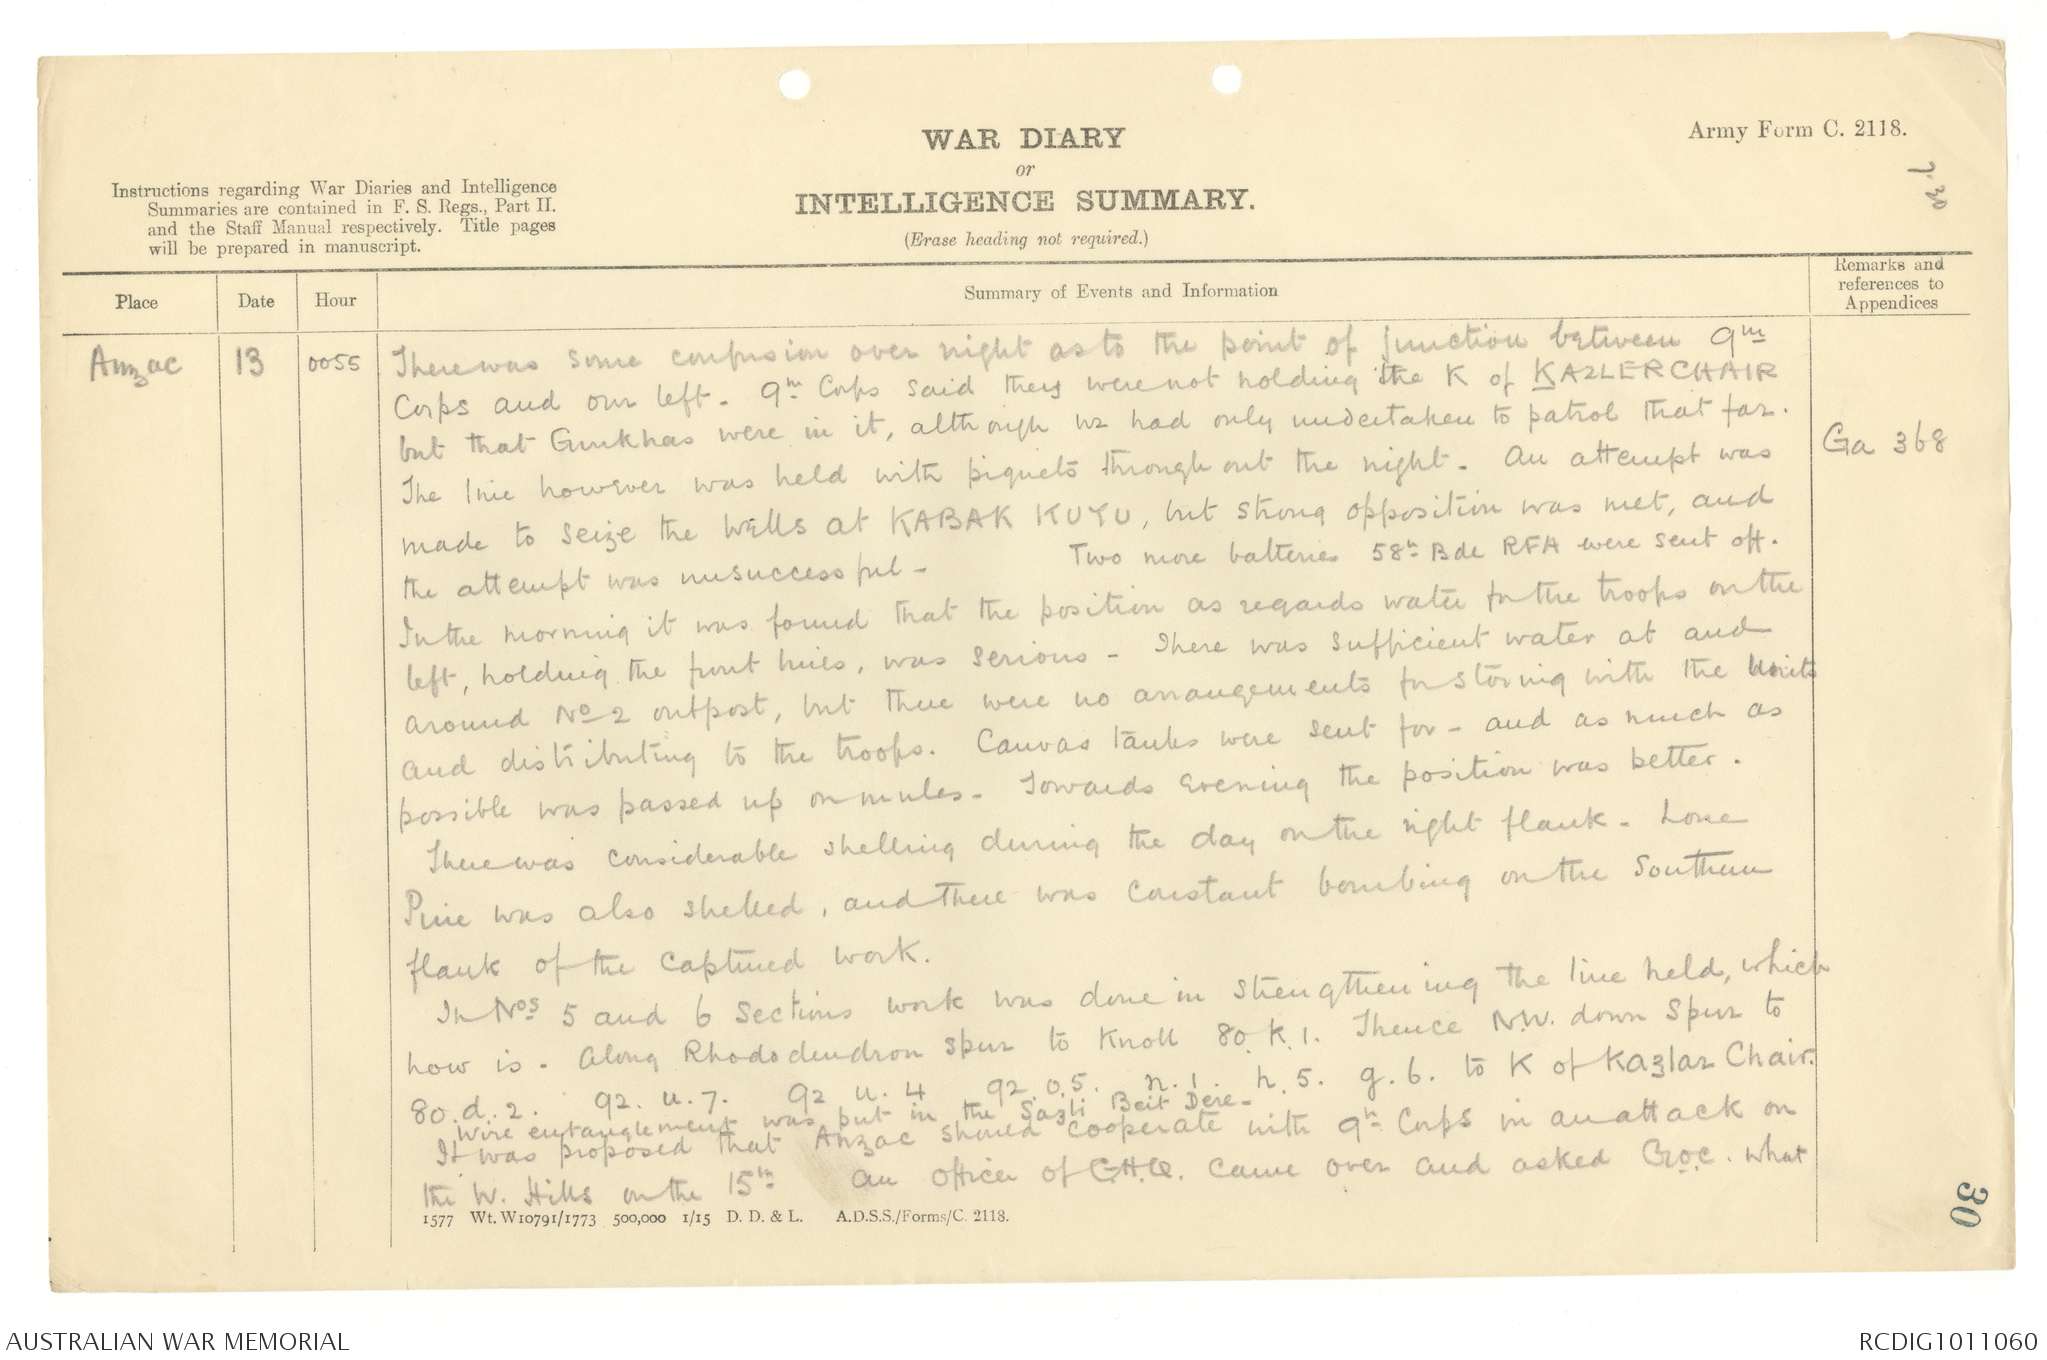 Army Form C. 2118.
WAR DIARY
or
INTELLIGENCE SUMMARY.
(Erase heading not required.)
Instructions regarding War Diaries and Intelligence
Summaries are contained in F. S. Regs., Part II.
and the Staff Manual respectively. Title pages
will be prepared in manuscript.
Place Date Hour Summary of Events and Information Remarks and references to Appendices
Anzac 13 0055 There was some confusion over night as to the point of junction between 9th
Corps and our left. 9th Corps said they were not holding the K of KAZLERCHAIR
but that Gurkhas were in it, although we had only undertaken to patrol that far.
Ga 368
The line however was held with piquets throughout the night. An attempt was
made to seize the Wells at KABAK KUYU, but strong opposition was met, and
the attempt was unsuccessful - Two more batteries 58th Bde RFA were sent off.
In the morning it was found that the position as regards water for the troops on the
left, holding the front lines, was serious - There was sufficient water at and
around No 2 outpost, but there were no arrangements for storing with the Units
and distributing to the troops. Canvas tanks were sent for - and as much as
possible was passed up on mules - Towards evening the position was better.
There was considerable shelling during the day on the right flank - Lone
Pine was also shelled, and there was constant bombing on the Southern
flank of the captured work.
In Nos 5 and 6 Sections work was done in strengthening the line held, which
how is - Along Rhododendron spur to Knoll 80. K. 1. Thence N.W. down Spur to
80. d. 2. 92. u. 7. 92 u. 4 92. o. 5. n. 1. h. 5. g. 6. to K of Kazlar Chair.
Wire entanglement was put in the Sazli Beit Dere -
It was proposed that Anzac should cooperate with 9th Corps in an attack on
the W. Hills on the 15th An officer of G.H.Q. came over and asked G.O.C. what
1577 Wt. W10791/1773 500,000 1/15 D. D. & L. A.D.S.S./Forms/C. 2118.
30
AUSTRALIAN WAR MEMORIAL
RCDIG1011060